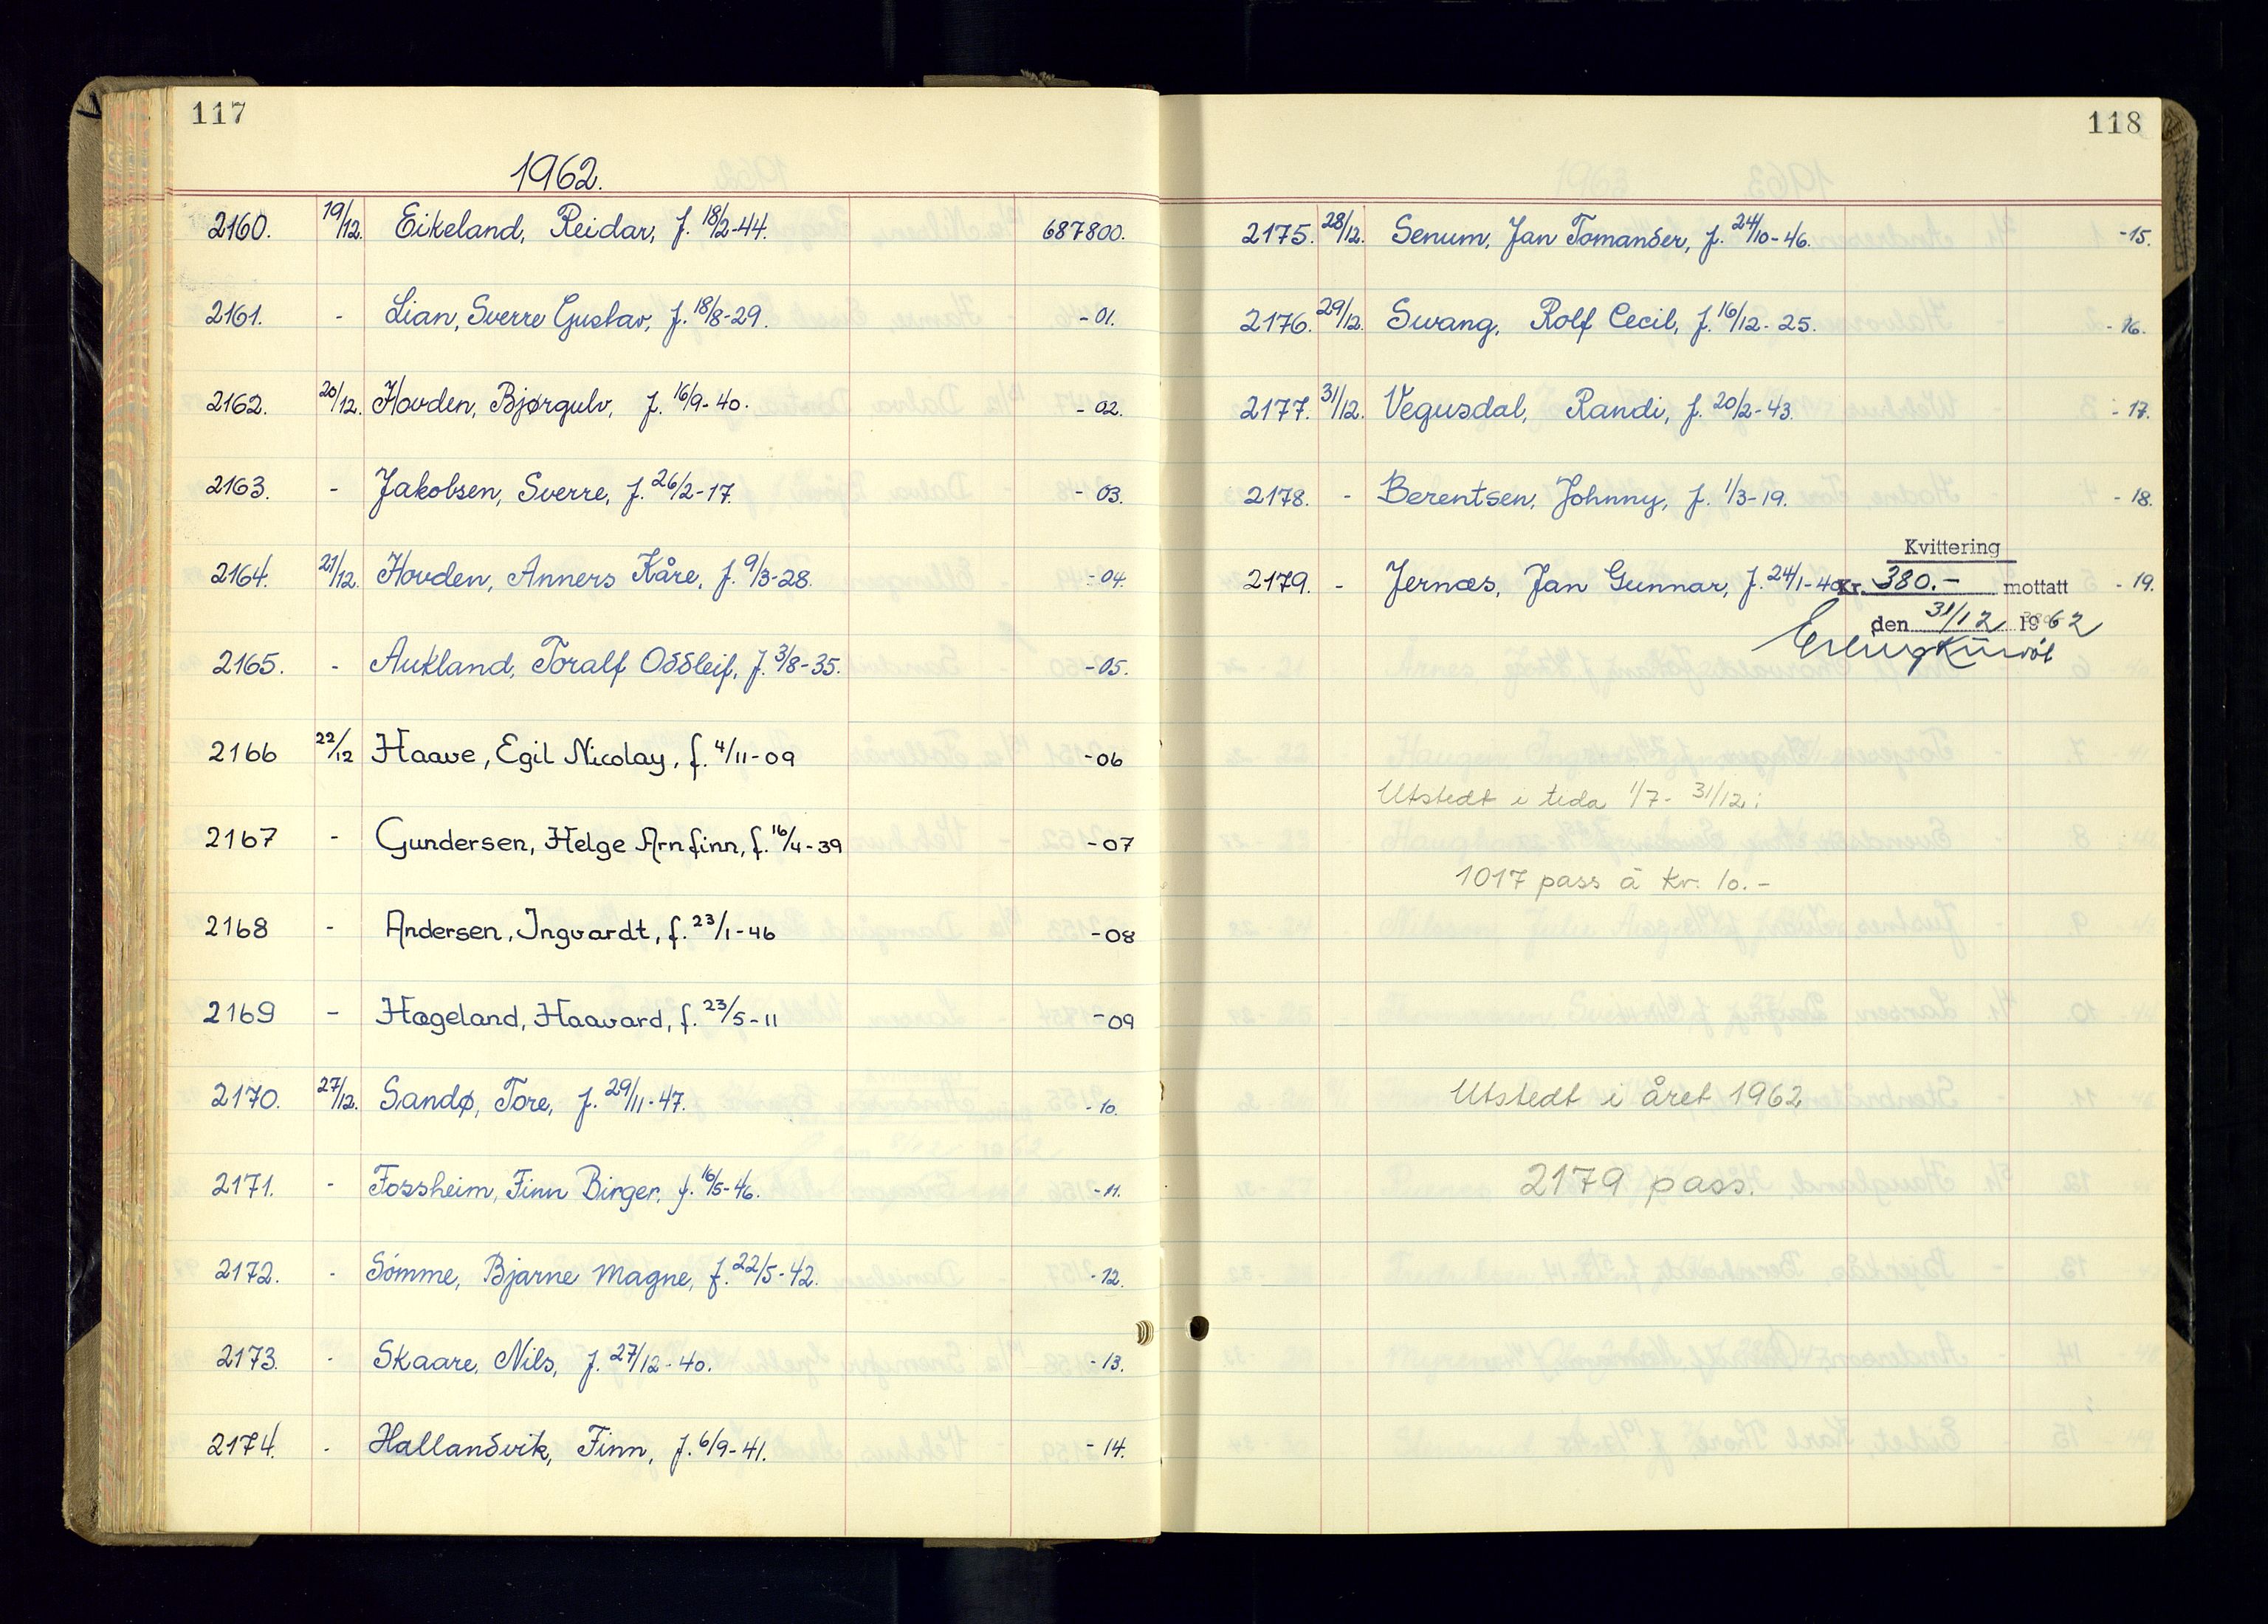 117
1962.
2160. 19/12. Eikeland, Reidar, f. 18/2-44. 687800.
2161. - Lian, Sverre Gustav, f. 18/8-29. -01.
2162. 20/12. Hovden, Bjørgulv, f. 16/9-40. -02.
2163. - Jakobsen, Sverre, f. 26/2-17. -03.
2164. 21/12. Hovden, Anners Kåre, f. 9/3-28. -04.
2165. - Aukland, Toralf Oddleif, f. 3/8-35. -05.
2166 22/12 Haave, Egil Nicolay, f. 4/11-09 -06
2167 - Gundersen, Helge Arnfinn, f. 16/4-39 -07
2168 - Andersen, Ingvardt, f. 23/1-46 -08
2169 - Hageland, Haavard, f. 23/5-11 -09
2170. 27/12. Sandø, Tore, f. 29/11-47. -10.
2171. - Fossheim, Finn Birger, f. 16/5-46. -11.
2172. - Sömme, Bjarne Magne, f. 22/5-42. -12.
2173. - Skaare, Nils, f. 27/12-40. -13.
2174. - Hallandsvik, Finn, f. 6/9-41. -14.
118
2175. 28/12. Senum, Jan Tomander, f. 24/10-46. -15.
2176. 29/12. Swang, Rolf Cecil, f. 16/12-25. -16.
2177. 31/12. Vegusdal, Randi, f. 20/2-43. -17.
2178. - Berentsen, Johnny, f. 1/3-19. -18.
Kvittering
2179. - Jernæs, Jan Gunnar, f. 24/1-40 Kr. 380.- mottatt -19.
den 31/12 1962
Utstedt i tida 1/7- 31/12:
1017 pass á kr. 10.-
Utstedt i året 1962
2179 pass.